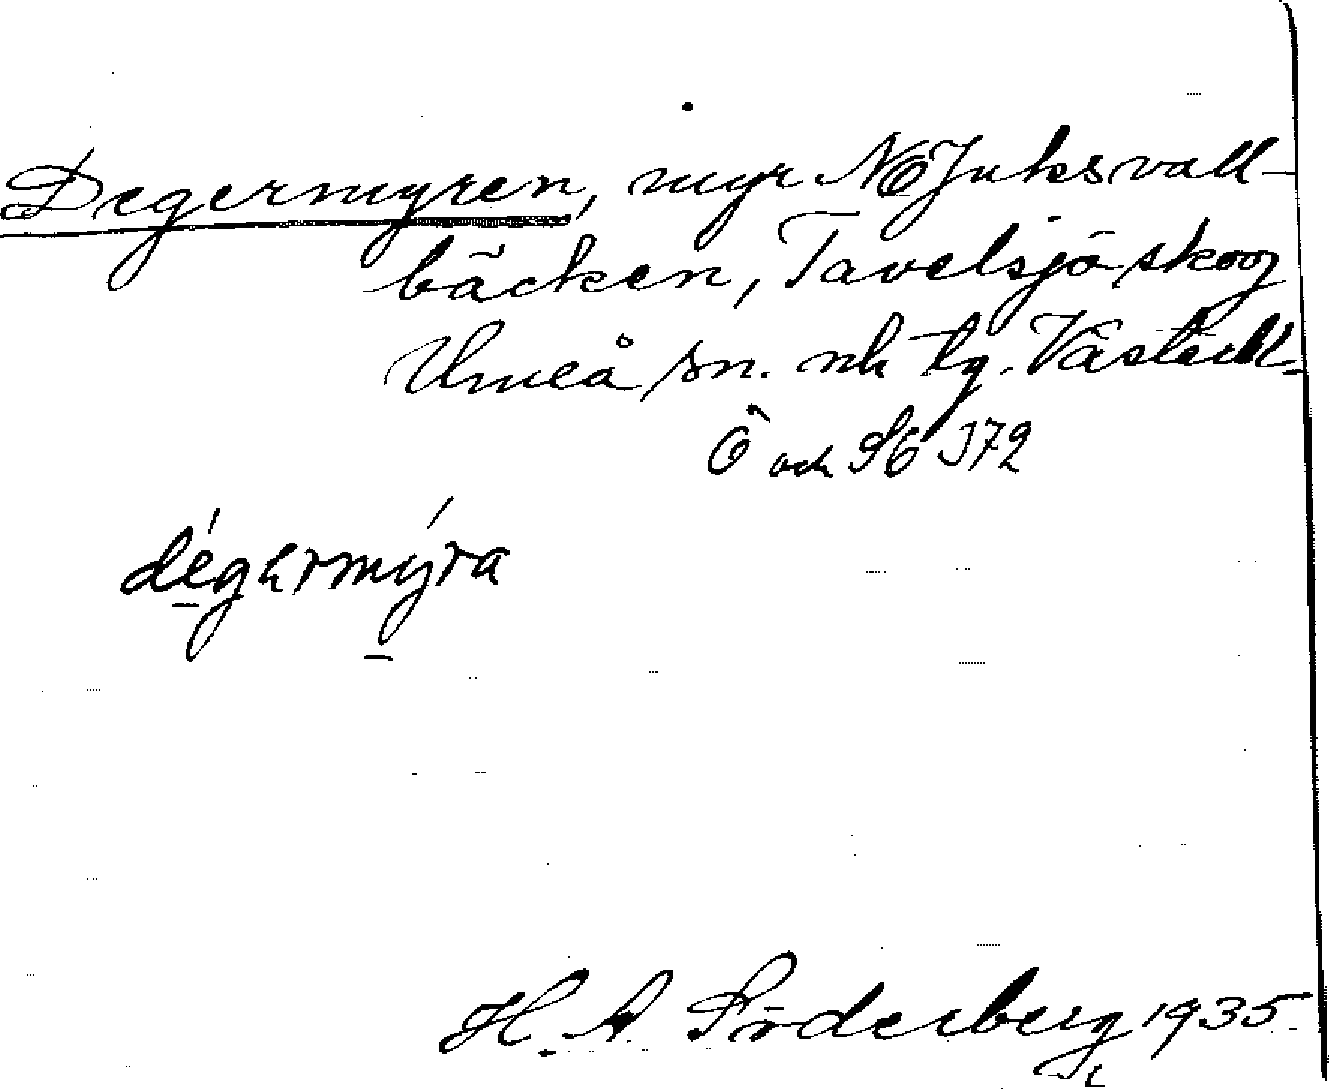 Degermyren, myr NÖ Juksvall-
bäcken, Tavelsjö skog
Umeå sn. nk tg. Västerb.
Ö och S6 J72
dégermýra
H. A. Söderberg 1935